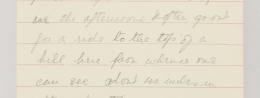 the afternoons & often go out
for a ride to the top of a
hill here from whence one
can see about 40 miles in